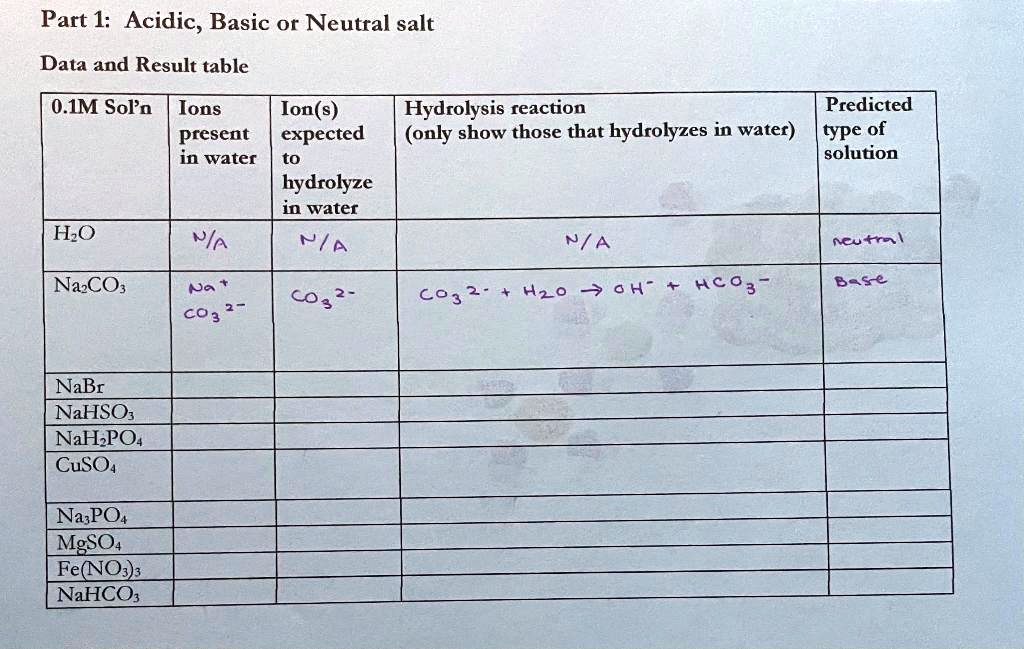 Part 1: Acidic, Basic or Neutral salt
Data and Result table
0.1M Sol'n
Ions
present
in water
Ion(s)
expected
to
hydrolyze
in water
Hydrolysis reaction
(only show those that hydrolyzes in water)
Predicted
type of
solution
H₂O
N/A
N/A
N/A
neutral
Na₂CO₃
Na⁺
CO₃²⁻
CO₃²⁻
CO₃²⁻ + H₂O → OH⁻ + HCO₃⁻
Base
NaBr
NaHSO₃
NaH₂PO₄
CuSO₄
Na₃PO₄
MgSO₄
Fe(NO₃)₃
NaHCO₃